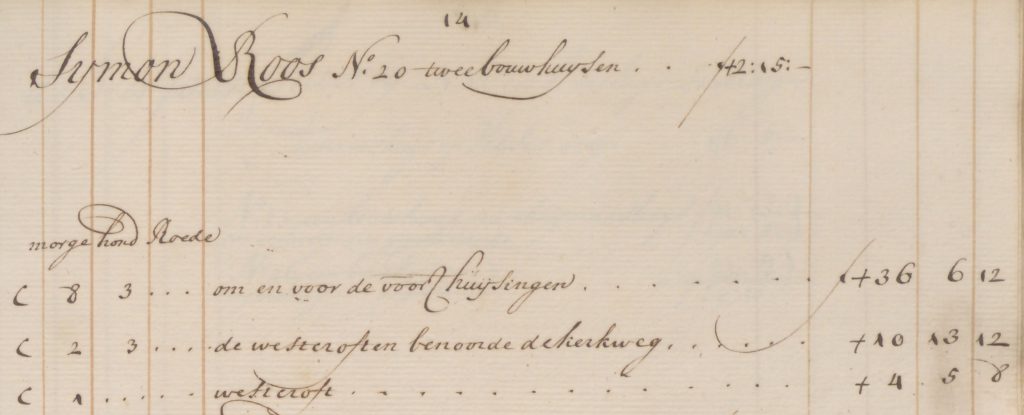 14
Symon Roos No. 20 twee bouwhuysen . . ƒ42:15:-
morge hond Roede
C 8 3 ... om en voor de voors huijsingen . . . . . . . ƒ+36 6 12
C 2 3 .... de westcroften benoorde de kerkweg, . . . . . +10 13 12
C 1 ..... westcroft . . . . . . . . . . . . . +4 5 8